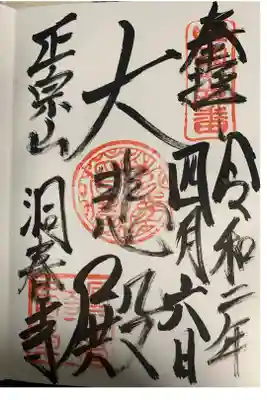 奉拝
令和二年
四月六日
大悲殿
正宗山
洞春寺